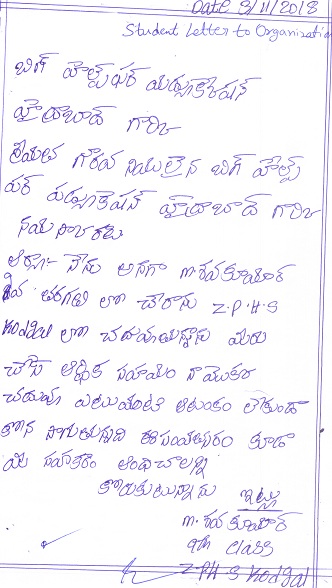 Date 3/11/2018
Student Letter to Organization
బిగ్ హెల్ప్ ఫర్ ఎడ్యుకేషన్
హైదరాబాద్ గారికి
గౌరవనీయులైన బిగ్ హెల్ప్
ఫర్ ఎడ్యుకేషన్ హైదరాబాద్ గారికి
నమస్కారాలు
నేను అనగా m. శివకుమార్
తరగతి లో చేరాను Z.P.H.S
Kodgal లో చదువుతున్నాను మీరు
చేసే ఆర్థిక సహాయం నా యొక్క
చదువు ఎటువంటి ఆటంకం లేకుండా
కొన సాగుతున్నది ఈ సంవత్సరం కూడా
మీ సహకారం అందించాలని
కోరుకుంటున్నాను ఇట్లు
m. శివకుమార్
9th class
Z.P.H.S Kodgal